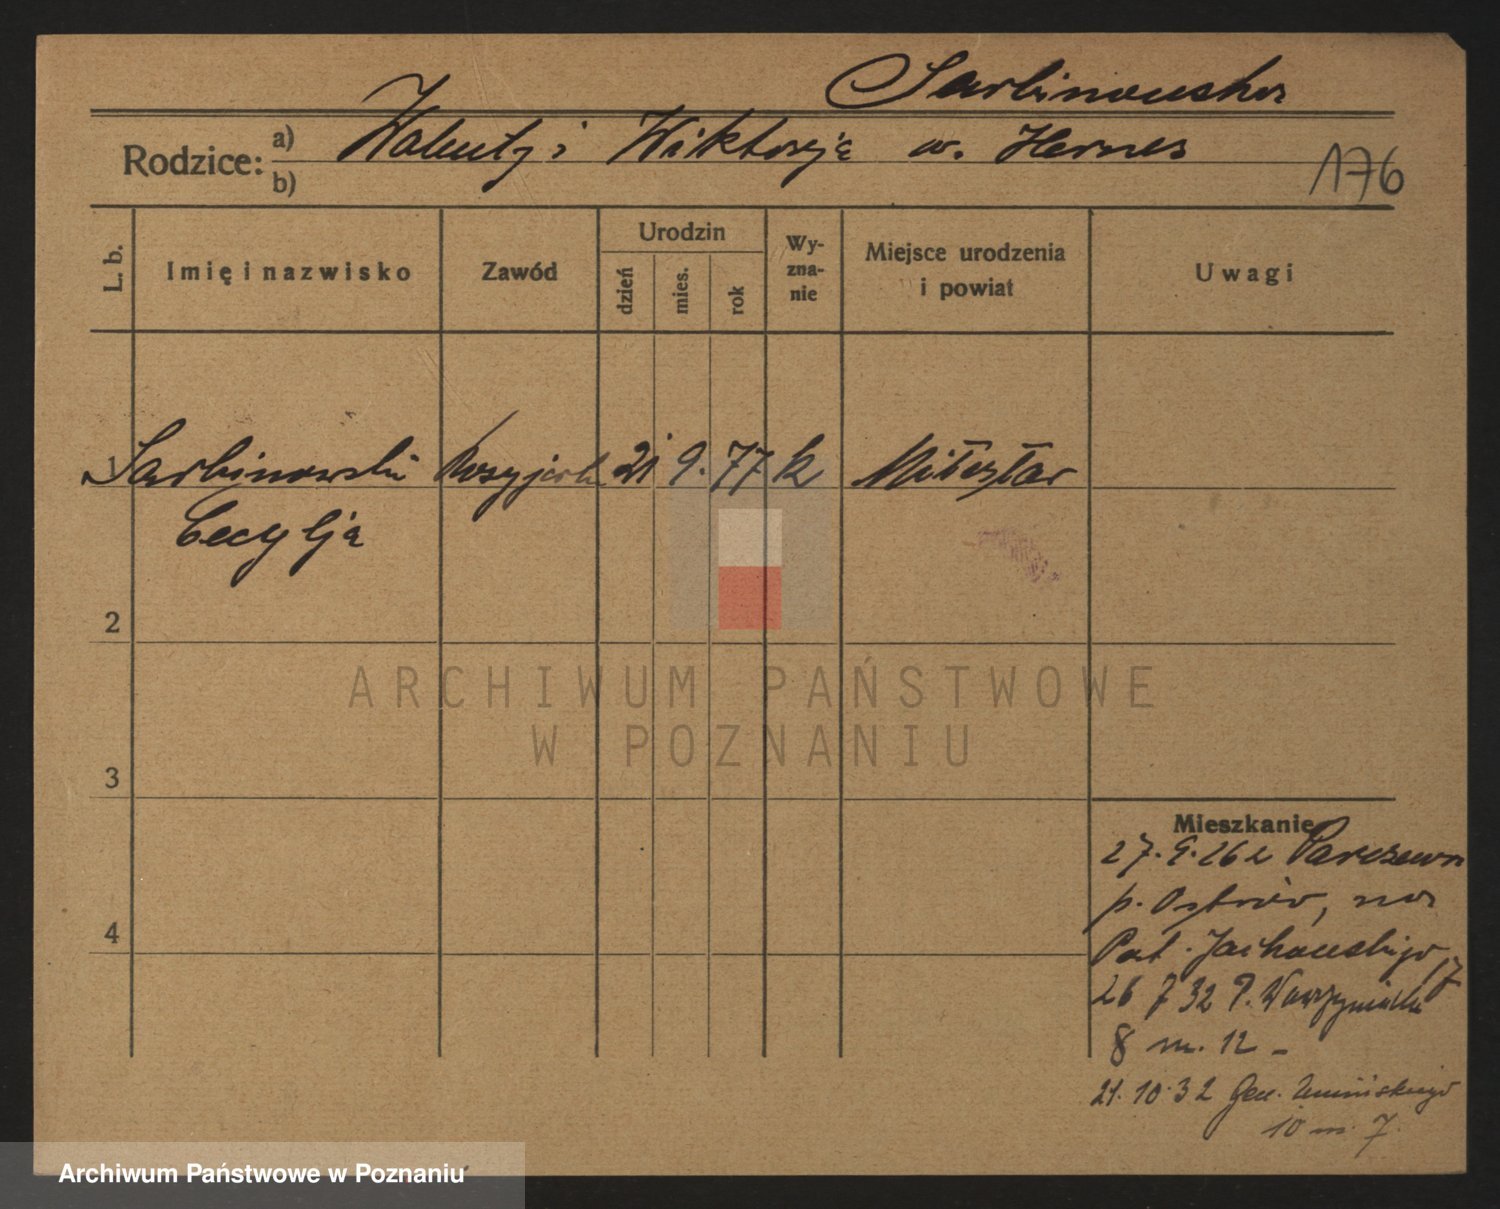 Sarbinowska
Rodzice: a) Walenty i Wiktorja w. Hernes
b)
176
L. b.
Imię i nazwisko
Zawód
Urodzin
dzień
mies.
rok
Wy-
zna-
nie
Miejsce urodzenia
i powiat
Uwagi
1 Sarbinowska 21 9. 77 k Miłosław
Cecylja
2
3
4
Mieszkanie
27. 9. 26 z Parczewa
p. Ostrów, na
Pat. Jackowskiego 17
26 7 32 P. Wawrzyniaka
8 m. 12 -
21. 10. 32 Gen. Umińskiego
10 m. 7.
ARCHIWUM PAŃSTWOWE
W POZNANIU
Archiwum Państwowe w Poznaniu